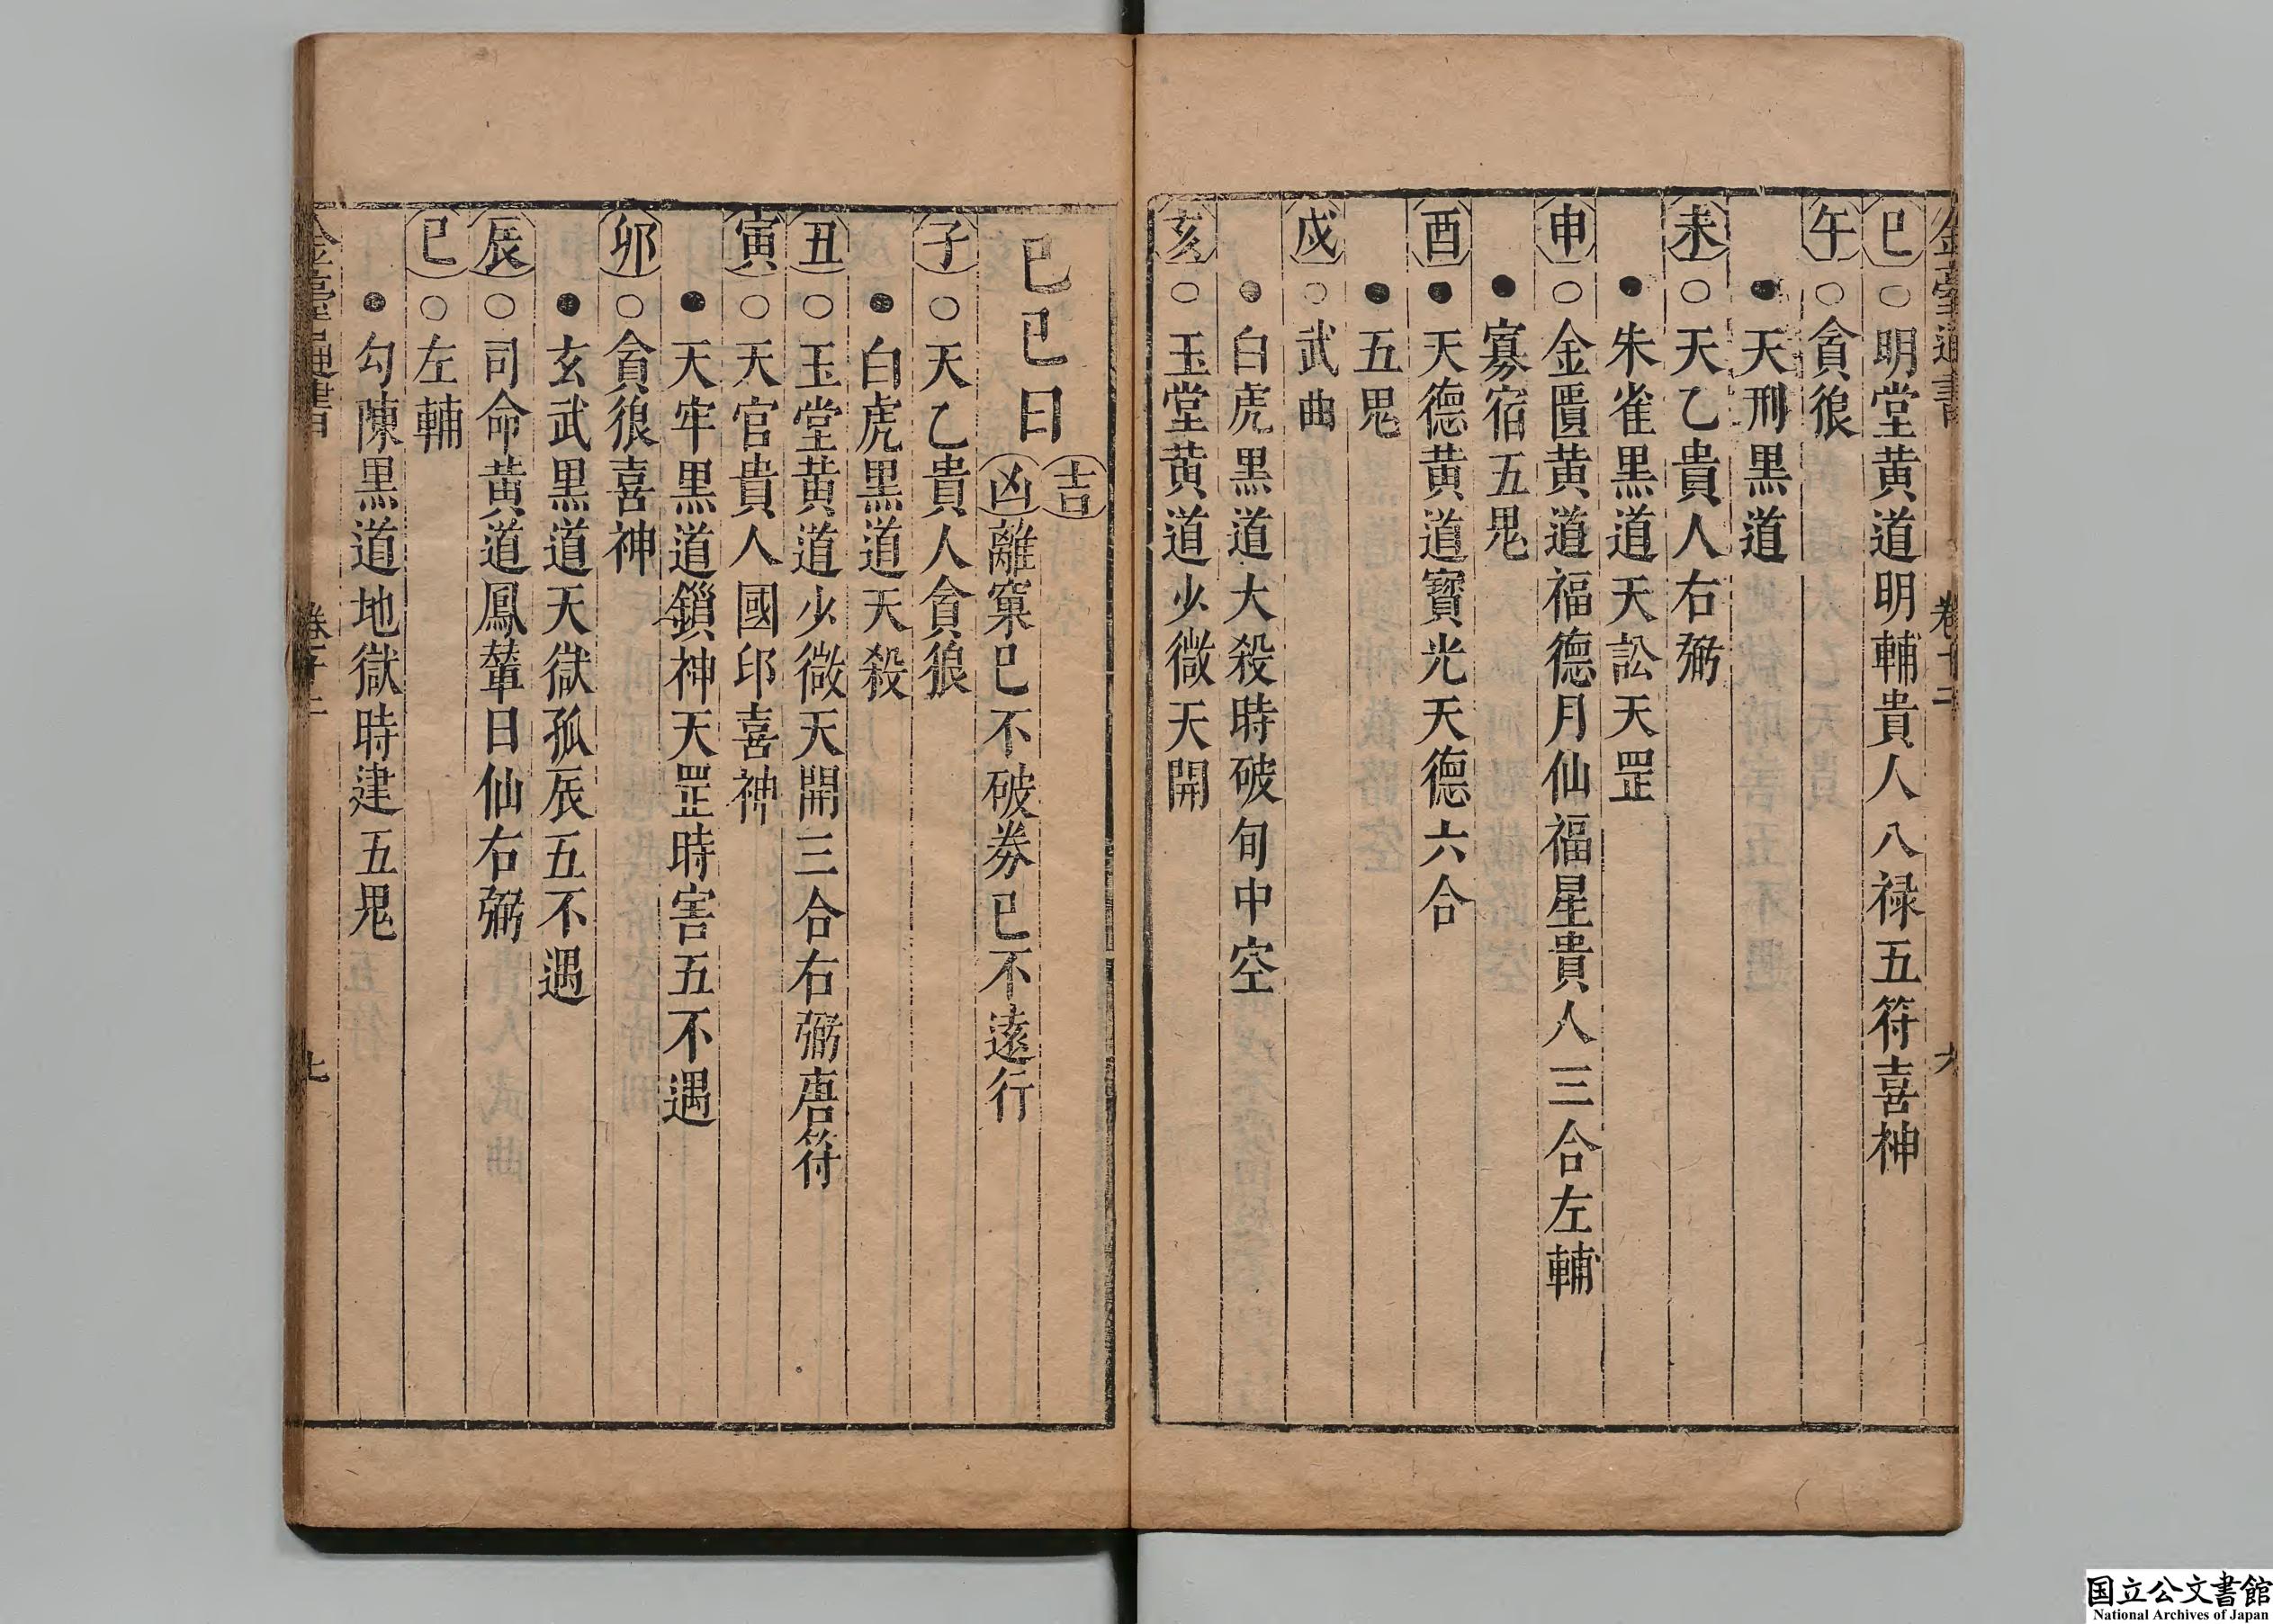 金臺通書 卷十二 六
巳○明堂黄道明輔貴人八禄五符喜神
午○貪狼
●天刑黒道
未○天乙貴人右弼
●朱雀黒道天訟天罡
申○金匱黄道福德月仙福星貴人三合左輔
●寡宿五鬼
酉●天德黄道寳光天德六合
●五鬼
戌○武曲
●白虎黒道大殺時破旬中空
亥○玉堂黄道少微天開
己巳日
吉
凶離窠巳不破劵己不遠行
子○天乙貴人貪狼
●白虎黒道天殺
丑○玉堂黄道少微天開三合右弼唐符
寅○天官貴人國印喜神
●天牢黒道鎻神天罡時害五不遇
卯○貪狼喜神
●玄武黒道天獄孤辰五不遇
辰○司命黄道鳳輦日仙右弼
巳○左輔
●勾陳黒道地獄時建五鬼
金臺通書 卷十二 七
国立公文書館
National Archives of Japan